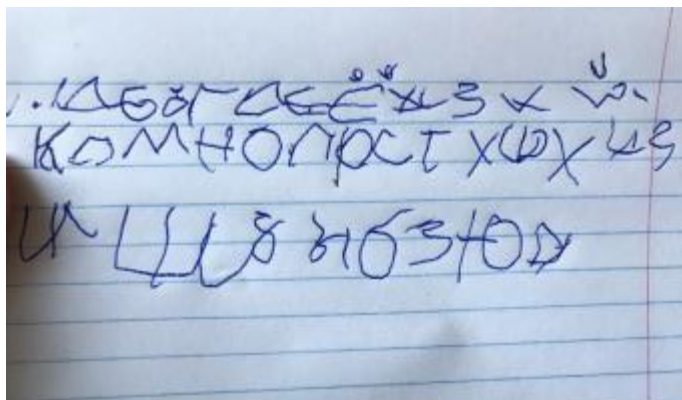 АБВГДЕЁЖЗИЙ
КЛМНОПРСТУФХЦЧ
ШЩЪЫЬЭЮЯ